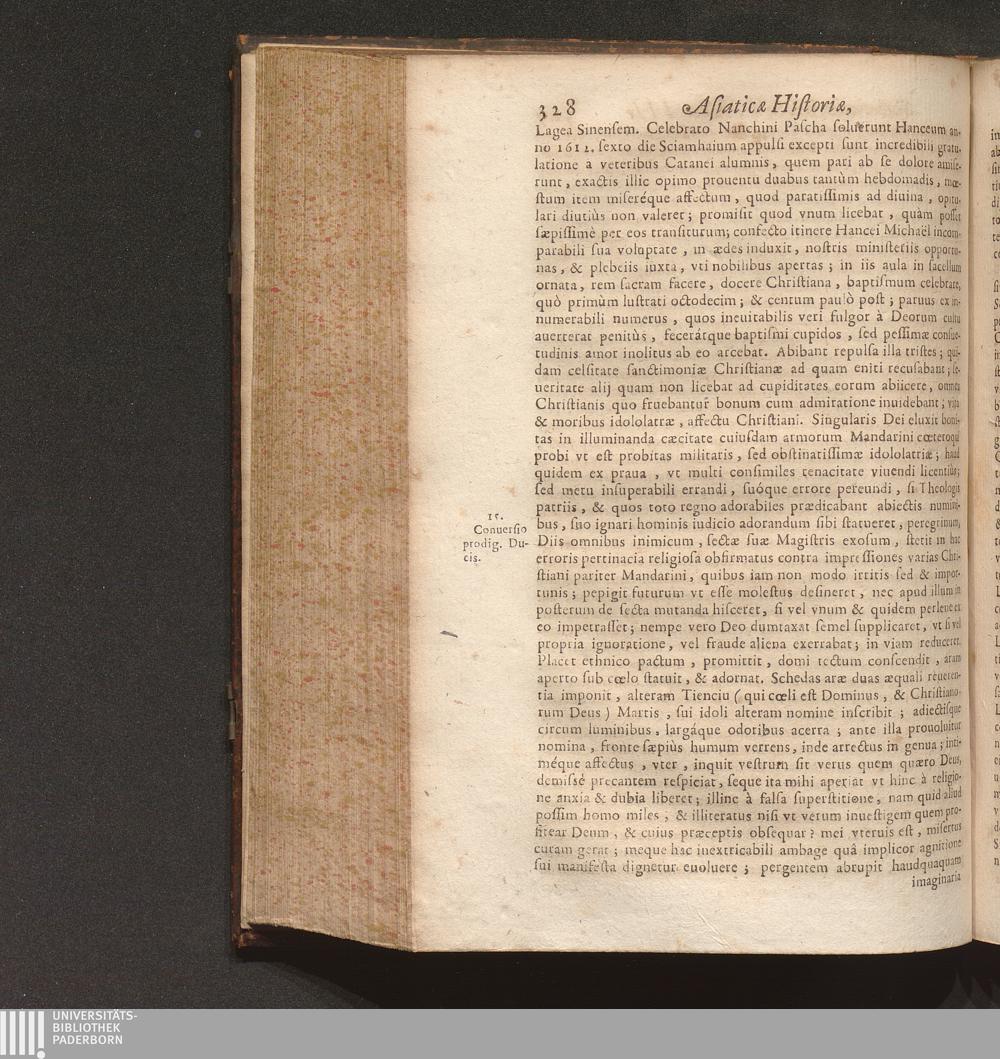 328 Aſiaticæ Hiſtoriæ,
Lagea Sinenſem. Celebrato Nanchini Paſcha ſoluerunt Hanceum an-
no 1612. ſexto die Sciamhaium appulſi excepti ſunt incredibili gratu-
latione a veteribus Catanei alumnis, quem pari ab ſe dolore amiſe-
runt, exactis illic opimo prouentu duabus tantùm hebdomadis, mœ-
ſtum item miſeréque affectum, quod paratiſſimis ad diuina, opitu-
lari diutiùs non valeret; promiſit quod vnum licebat, quàm poſſet
ſæpiſſimè per eos tranſiturum; confecto itinere Hancei Michaël incom-
parabili ſua voluptate, in ædes induxit, noſtris miniſteriis opportu-
nas, & plebeiis iuxta, vti nobilibus apertas; in iis aula in ſacellum
ornata, rem ſacram facere, docere Chriſtiana, baptiſmum celebrare,
quò primùm luſtrati octodecim; & centum paulò poſt; paruus ex in-
numerabili numerus, quos ineuitabilis veri fulgor à Deorum cultu
auerterat penitùs, fecerátque baptiſmi cupidos, ſed peſſimæ conſue-
tudinis amor inolitus ab eo arcebat. Abibant repulſa illa triſtes; qui-
dam celſitate ſanctimoniæ Chriſtianæ ad quam eniti recuſabant; ſe-
ueritate alij quam non licebat ad cupiditates eorum abiicere, omnes
Chriſtianis quo fruebantur bonum cum admiratione inuidebant; vita
& moribus idololatræ, affectu Chriſtiani. Singularis Dei eluxit boni-
tas in illuminanda cæcitate cuiuſdam armorum Mandarini cœteroqui
probi vt eſt probitas militaris, ſed obſtinatiſſimæ idololatriæ; haud
quidem ex praua, vt multi conſimiles tenacitate viuendi licentiùs;
ſed metu inſuperabili errandi, ſuóque errore pereundi, ſi Theologis
patriis, & quos toto regno adorabiles prædicabant abiectis numini-
bus, ſuo ignari hominis iudicio adorandum ſibi ſtatueret, peregrinum,
15.
Conuerſio
prodig. Du-
cis.
Diis omnibus inimicum, ſectæ ſuæ Magiſtris exoſum, ſtetit in hac
erroris pertinacia religioſa obfirmatus contra impreſſiones varias Chri-
ſtiani pariter Mandarini, quibus iam non modo irritis ſed & impor-
tunis; pepigit futurum vt eſſe moleſtus deſineret, nec apud illum in
poſterum de ſecta mutanda hiſceret, ſi vel vnum & quidem perleue ex
eo impetraſſet; nempe vero Deo dumtaxat ſemel ſupplicaret, vt ſi vel
propria ignoratione, vel fraude aliena exerrabat; in viam reduceret.
Placet ethnico pactum, promittit, domi tectum conſcendit, aram
aperto ſub cœlo ſtatuit, & adornat. Schedas aræ duas æquali reueren-
tia imponit, alteram Tienciu (qui cœli eſt Dominus, & Chriſtiano-
rum Deus) Martis, ſui idoli alteram nomine inſcribit; adiectiſque
circum luminibus, largáque odoribus acerra; ante illa prouoluitur
nomina, fronte ſæpiùs humum verrens, inde arrectus in genua; inti-
méque affectus, vter, inquit veſtrum ſit verus quem quæro Deus,
demiſsè precantem reſpiciat, ſeque ita mihi aperiat vt hinc à religio-
ne anxia & dubia liberet; illinc à falſa ſuperſtitione, nam quid aliud
poſſim homo miles, & illiteratus niſi vt verum inueſtigem quem pro-
fitear Deum, & cuius præceptis obſequar? mei vteruis eſt, miſertus
curam gerat; meque hac inextricabili ambage quâ implicor agnitione
ſui manifeſta dignetur euoluere; pergentem abrupit haudquaquam
imaginaria
UNIVERSITÄTS-
BIBLIOTHEK
PADERBORN